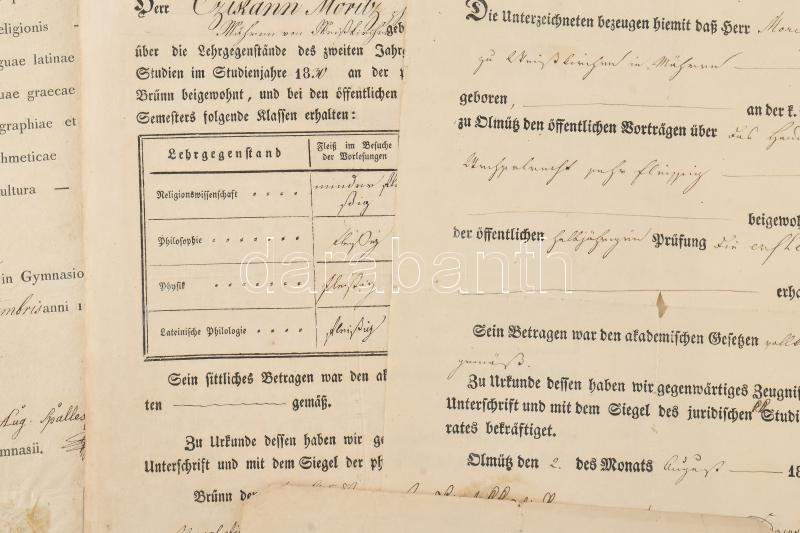 eligionis -
guae latinae
uae graecae
graphiae et
hmeticae
cultura —
in Gymnasio
mbris anni 1
Aug.
mnasii.
Herr Czikann Moritz
Mähren von Weißkirchen geb
über die Lehrgegenstände des zweiten Jahrg
Studien im Studienjahre 1830 an der p
Brünn beigewohnt, und bei den öffentlichen
Semesters folgende Klassen erhalten:
Lehrgegenstand
Fleiß im Besuche
der Vorlesungen
Religionswissenschaft . . . .
minder flei
ßig
Philosophie . . . . . . .
fleißig
Physik . . . . . . . .
fleißig
Lateinische Philologie . . . .
fleißig
Sein sittliches Betragen war den ak
ten gemäß.
Zu Urkunde dessen haben wir ge
Unterschrift und mit dem Siegel der ph
Brünn der
Die Unterzeichneten bezeugen hiemit daß Herr Mori
zu Weißkirchen in Mähren
geboren, an der k.
zu Olmütz den öffentlichen Vorträgen über das Hand
Wechselrecht sehr fleißig
beigewoh
der öffentlichen halbjährigen Prüfung die erste
erha
Sein Betragen war den akademischen Gesetzen voll
gemäß.
Zu Urkunde dessen haben wir gegenwärtiges Zeugniß
Unterschrift und mit dem Siegel des juridischen Studi
rates bekräftiget.
Olmütz den 2. des Monats August 18
darabanth